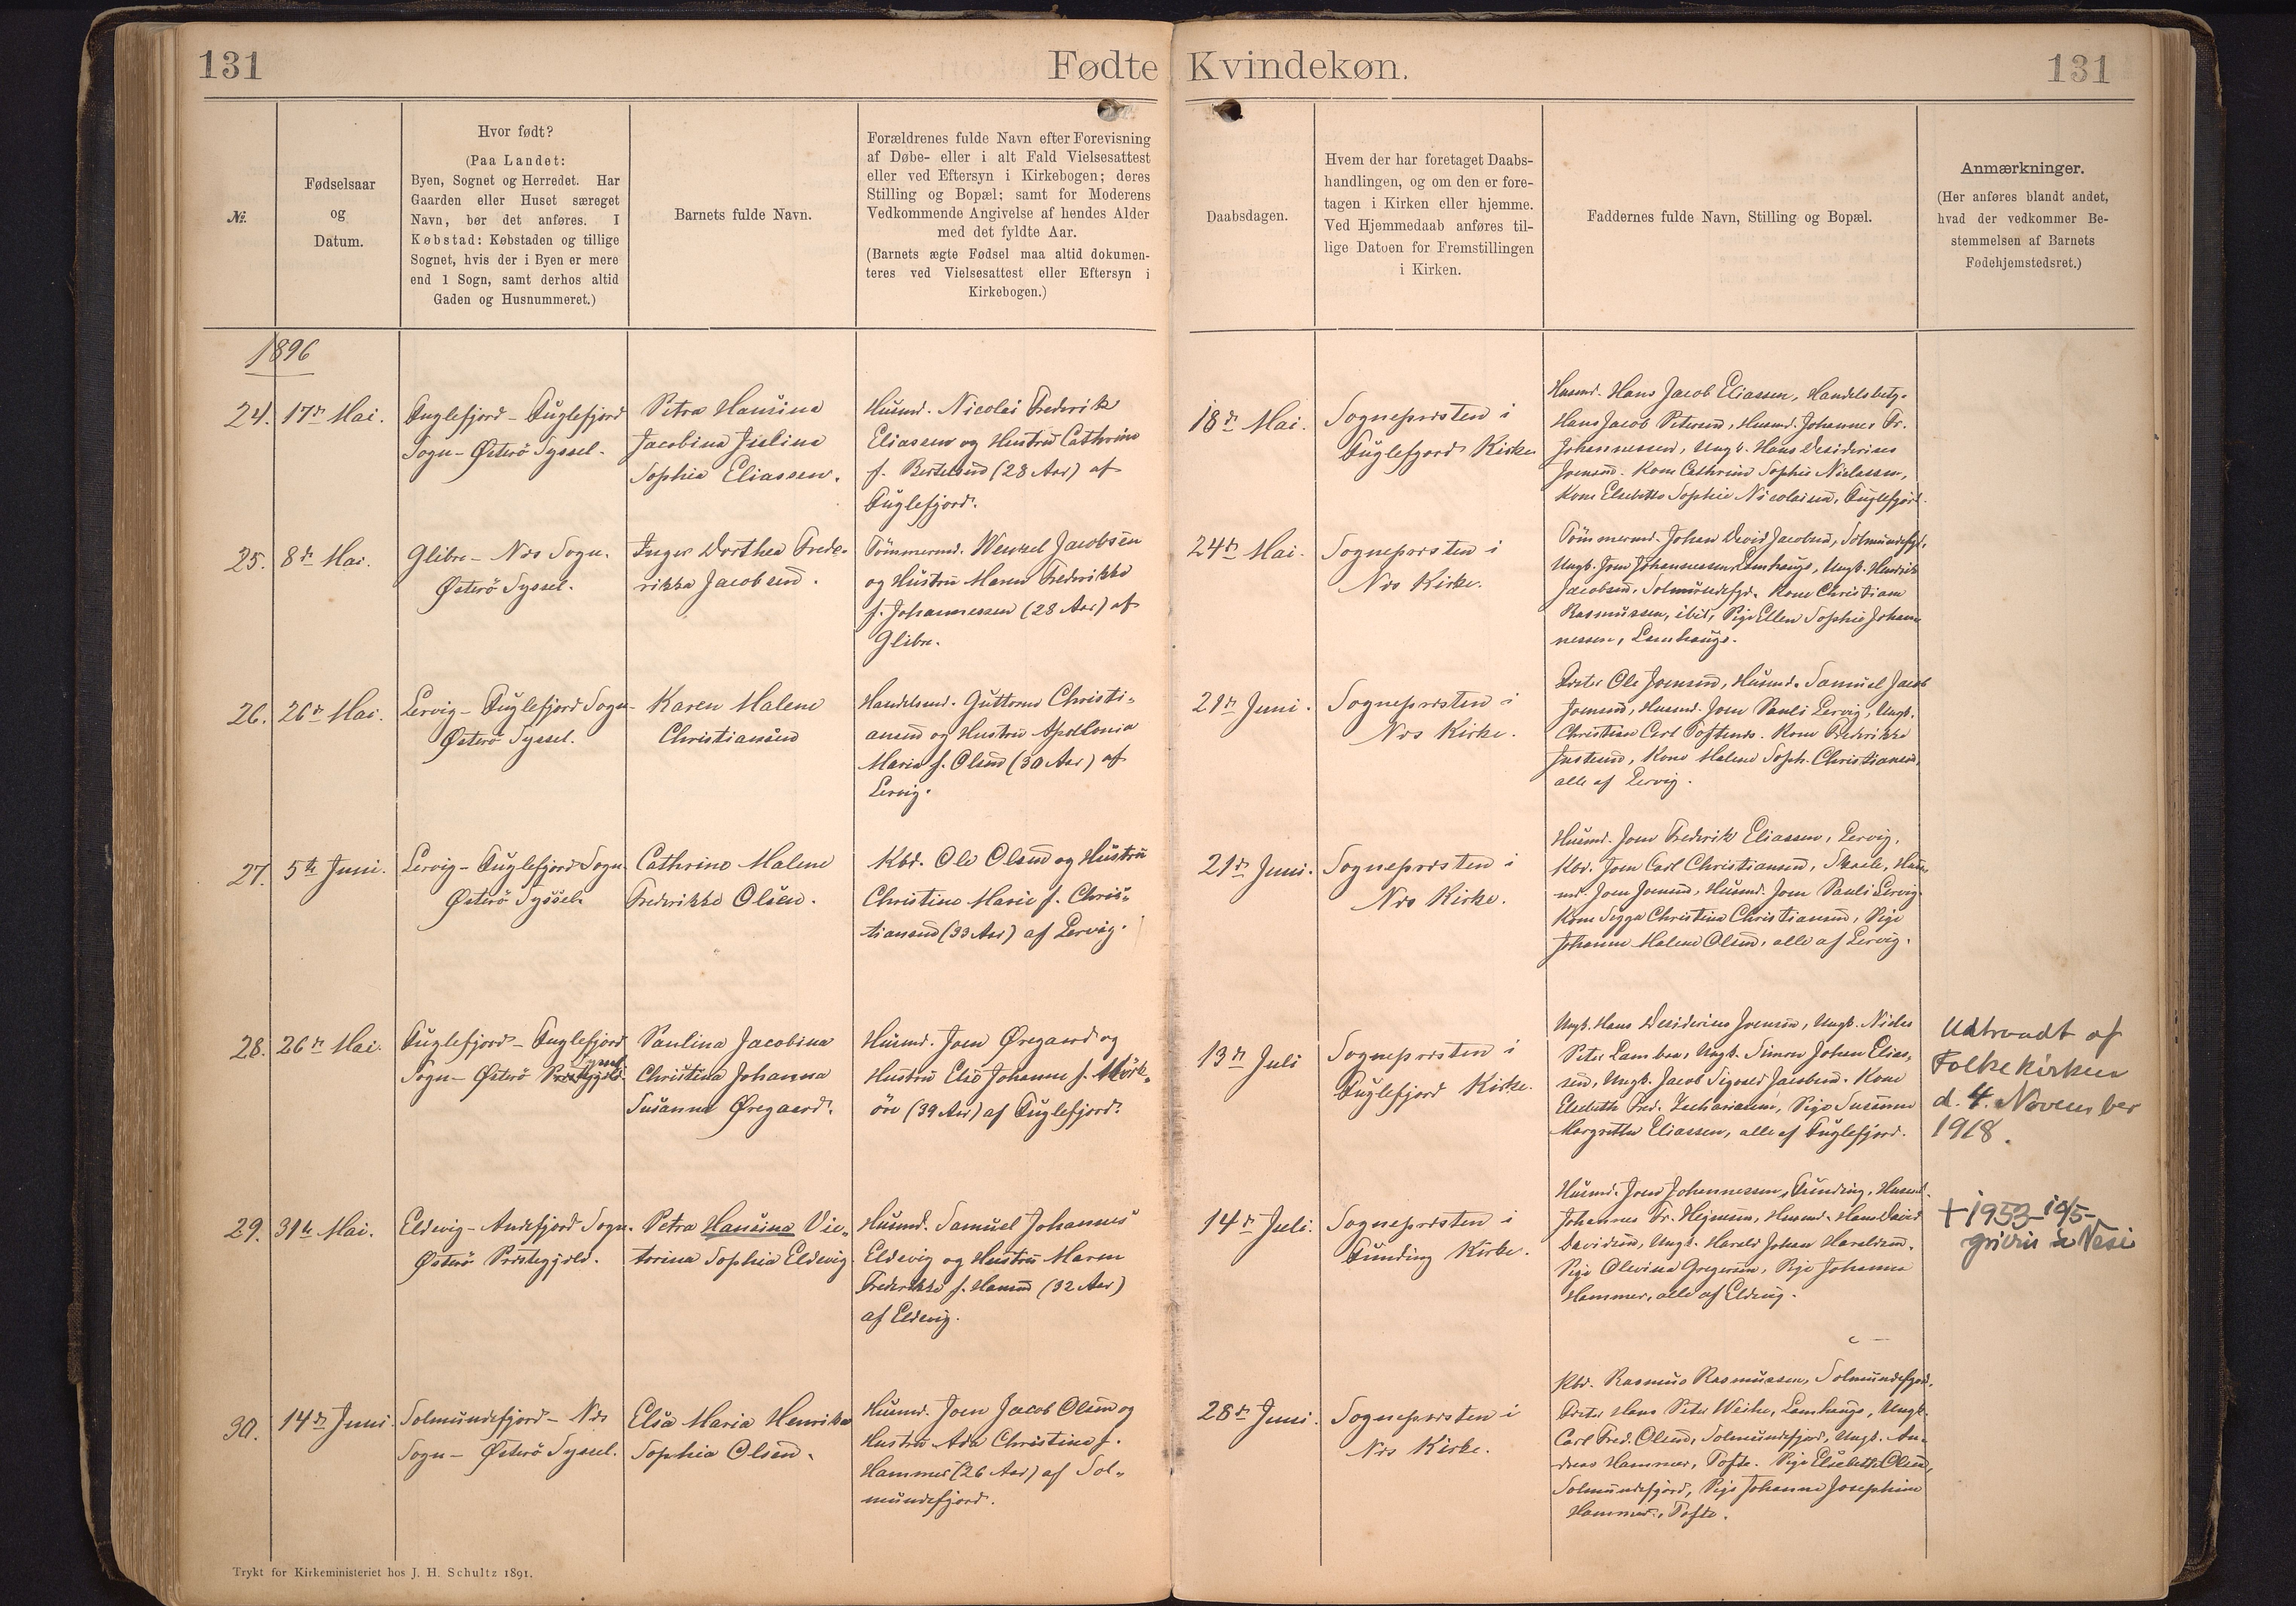 131
Fødte
Kvindekøn.
131
№.
Fødselsaar
og
Datum.
Hvor født?
(Paa Landet:
Byen, Sognet og Herredet. Har
Gaarden eller Huset særeget
Navn, bør det anføres. I
Købstad: Købstaden og tillige
Sognet, hvis der i Byen er mere
end 1 Sogn, samt derhos altid
Gaden og Husnummeret.)
Barnets fulde Navn.
Forældrenes fulde Navn efter Forevisning
af Døbe- eller i alt Fald Vielsesattest
eller ved Eftersyn i Kirkebogen; deres
Stilling og Bopæl; samt for Moderens
Vedkommende Angivelse af hendes Alder
med det fyldte Aar.
(Barnets ægte Fødsel maa altid dokumen-
teres ved Vielsesattest eller Eftersyn i
Kirkebogen.)
Daabsdagen.
Hvem der har foretaget Daabs-
handlingen, og om den er fore-
tagen i Kirken eller hjemme.
Ved Hjemmedaab anføres til-
lige Datoen for Fremstillingen
i Kirken.
Faddernes fulde Navn, Stilling og Bopæl.
Anmærkninger.
(Her anføres blandt andet,
hvad der vedkommer Be-
stemmelsen af Barnets
Fødehjemstedsret.)
1896
24.
17de Mai.
Fuglefjord - Fuglefjord
Sogn - Østerö Syssel.
Petra Hansina
Jacobina Julina
Sophia Eliassen.
Husmd. Nicolai Frederik
Eliassen og Hustru Cathrine
f. Bertelsen (28 Aar) af
Fuglefjord.
18de Mai.
Sognepresten i
Fuglefjord Kirke
Husmd. Hans Jacob Eliassen, Handelsbetj.
Hans Jacob Petersen, Husmd. Johannes Fr.
Johannessen, Ungk. Hans Desiderius
Joensen. Kone Cathrine Sophie Niclassen,
Kone Elsebette Sophie Nicolaisen, Fuglefjord.
25.
8de Mai.
Glibre - Næs Sogn.
Østerö Syssel.
Inger Dorthea Frede-
rikka Jacobsen.
Tömmermd. Wenzel Jacobsen
og Hustru Maren Frederikke
f. Johannessen (28 Aar) af
Glibre.
24de Mai.
Sognepresten i
Næs Kirke.
Tömmermd. Johan David Jacobsen, Solmundefjd.
Ungk. Joen Johannessen Lamhauge, Ungk. Hendrik
Jacobsen, Solmundefjd. Kone Christiane
Rasmussen, ibid, Pige Ellen Sophie Johan-
nessen, Lamhauge.
26.
26de Mai.
Lervig - Fuglefjord Sogn -
Østerö Syssel.
Karen Malene
Christiansen
Handelsmd. Guttorm Christi-
ansen og Hustru Apollonia
Maria f. Olsen (30 Aar) af
Lervig.
21de Juni.
Sognepresten i
Næs Kirke.
Ole Joensen, Husmd. Samuel Jacob
Joensen, Husmd. Joen Pauli Lervig, Ungk.
Christian Carl Toftenes. Kone Frederikke
Justesen, Kone Malene Soph. Christiansen,
alle af Lervig.
27.
5te Juni.
Lervig - Fuglefjord Sogn
Østerö Syssel.
Cathrine Malene
Frederikke Olsen.
Kbd. Ole Olsen og Hustru
Christine Marie f. Chris-
tiansen (33 Aar) af Lervig.
21de Juni.
Sognepresten i
Næs Kirke.
Husmd. Joen Frederik Eliassen, Lervig,
Kbd. Joen Carl Christiansen, Skaale, Hus-
md. Joen Joensen, Husmd. Joen Pauli Lervig
Kone Sigga Christina Christiansen, Pige
Johanne Malene Olsen, alle af Lervig.
28.
26de Mai.
Fuglefjord - Fuglefjord
Sogn - Østerö Præstegjeld.
Paulina Jacobina
Christina Johanna
Susanna Øregaard.
Husmd. Joen Øregaard og
Hustru Else Johanne f. Mörk-
öre (39 Aar) af Fuglefjord.
13de Juli
Sognepresten i
Fuglefjord Kirke.
Ungk. Hans Desiderius Joensen, Ungk. Nicles
Peter Lambaa, Ungk. Simon Johan Elias-
sen, Ungk. Jacob Sigvald Jacobsen. Kone
Elsebeth Fred. Zachariasen, Pige Susanne
Margrethe Eliassen, alle af Fuglefjord.
Udtraadt af
Folkekirken
d. 4. November
1918.
29.
31te Mai.
Eldevig - Andefjord Sogn.
Østerö Præstegjeld.
Petra Hansina Vic-
torina Sophia Eldevig
Husmd. Samuel Johannes
Eldevig og Hustru Maren
Frederikke f. Hansen (32 Aar)
af Eldevig.
14de Juli.
Sognepresten i
Funding Kirke.
Husmd. Joen Johannessen, Funding, Husmd.
Johannes Fr. Hejnesen, Husmd. Hans David
Davidsen, Ungk. Harald Johan Haraldsen.
Pige Olevina Gregersen, Pige Johanna
Hammer, alle af Eldevig.
+ 1953 10/5-
grivin á Nesi
30.
14de Juni.
Solmundefjord - Næs
Sogn - Østerö Syssel.
Elsa Maria Henrika
Sophia Olsen.
Husmd. Joen Jacob Olsen og
Hustru Ada Christine f.
Hammer (26 Aar) af Sol-
mundefjord.
28de Juni.
Sognepresten i
Næs Kirke.
Kbd. Rasmus Rasmussen, Solmundefjord,
Hans Peter Weihe, Lamhauge, Ungk.
Carl Fred. Olsen, Solmundefjord, Ungk. An-
dreas Hammer, Tofte. Pige Elsebeth Olsen,
Solmundefjord, Pige Johanne Josephine
Hammer, Tofte.
Trykt for Kirkeministeriet hos J. H. Schultz 1891.